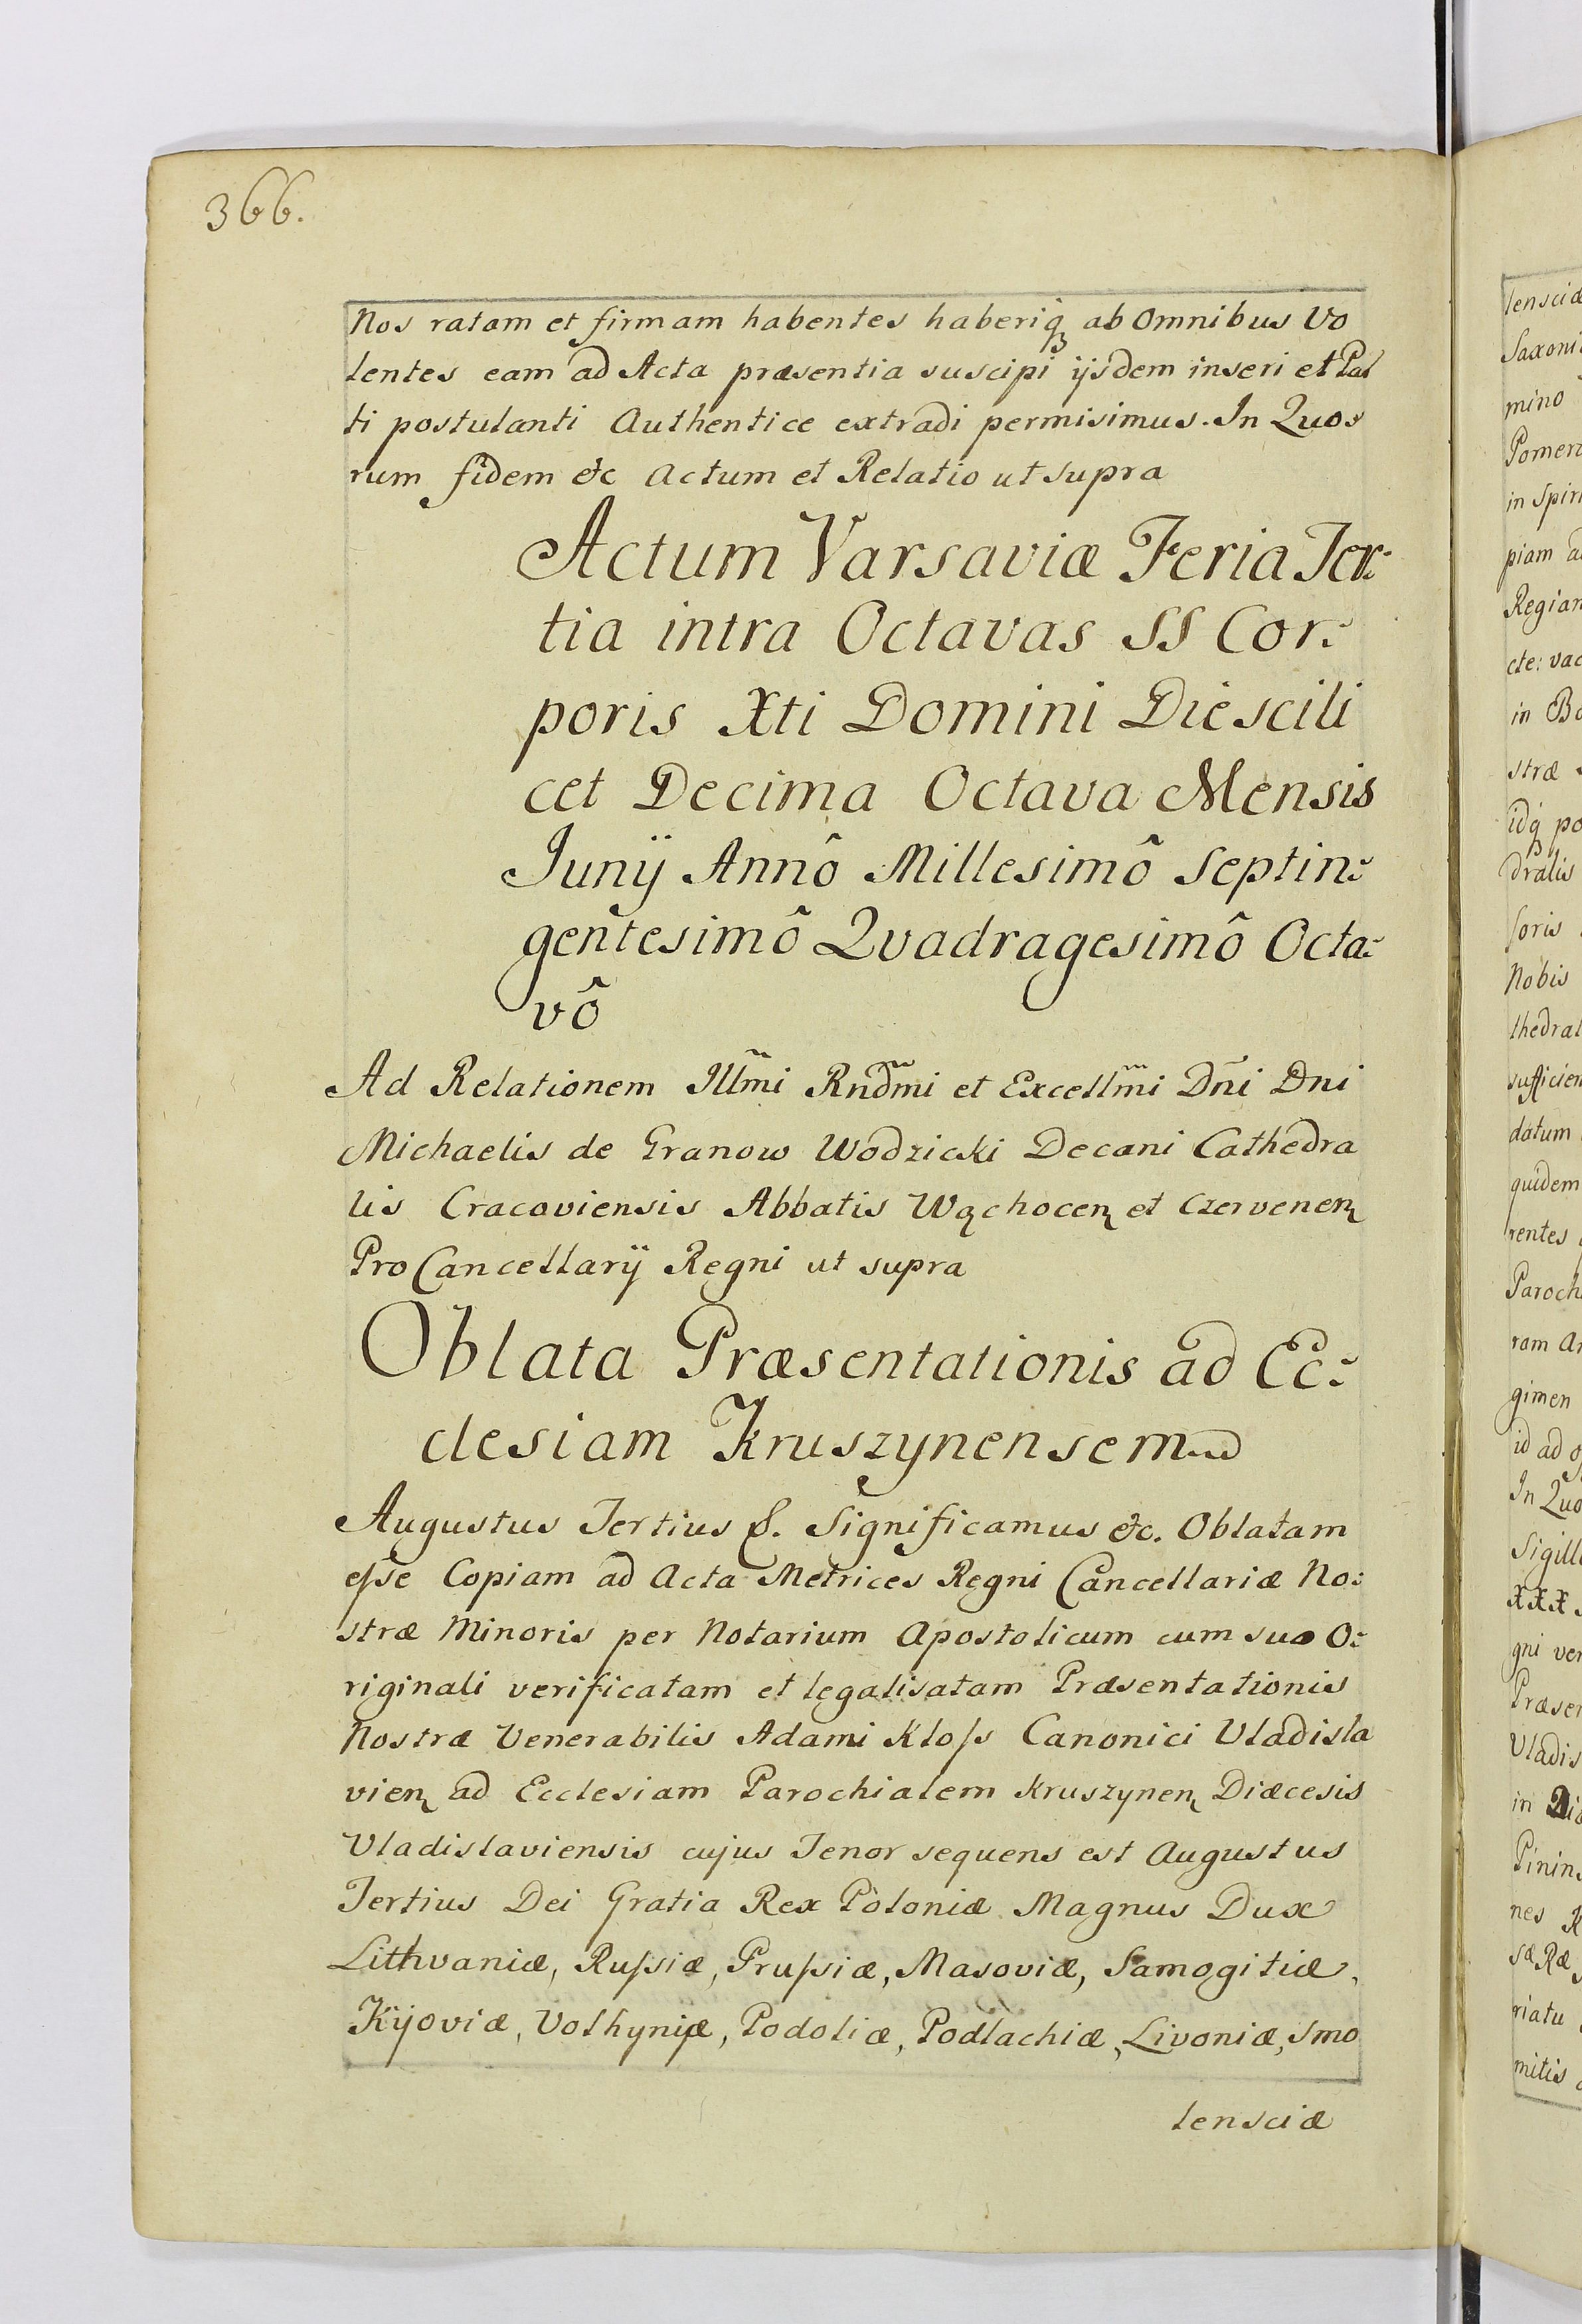 366.
Nos ratam et firmam habentes haberiq ab Omnibus Vo
lentes eam ad Acta præsentia suscipi ijsdem inseri et Par
ti postulanti Authentice extradi permisimus. In Quo:
rum fidem etc Actum et Relatio ut supra
Actum Varsaviæ Feria Ter:
tia intra Octavas SS Cor:
poris Xti Domini Die scili
cet Decima Octava Mensis
Junij Annô Millesimô Septin:
gentesimô Quadragesimô Octa:
vô
Ad Relationem Illm̃i Rndm̃i et Excellm̃i Dñi Dni
Michaelis de Granow Wodzicki Decani Cathedra
lis Cracoviensis Abbatis Wąchocen et Czervenen
Pro Cancellarij Regni ut supra
Oblata Præsentationis ad Ec:
clesiam Kruszynensem
Augustus Tertius &. Significamus etc. Oblatam
eſse Copiam ad Acta Metrices Regni Cancellariæ No:
stræ Minoris per Notarium Apostolicum cum suo O:
riginali verificatam et legalisatam Præsentationis
Nostræ Venerabilis Adami Kloſs Canonici Vladisla
vien ad Ecclesiam Parochialem Kruszynen Diæcesis
Vladislaviensis cujus Tenor sequens est Augustus
Tertius Dei Gratia Rex Poloniæ Magnus Dux
Lithvaniæ, Ruſsiæ, Pruſsiæ, Masoviæ, Samogitiæ,
Kijoviæ, Volhyniæ, Podoliæ, Podlachiæ, Livoniæ, Smo
lensciæ
lensciæ
mino
in Spiri
stræ
Nobis
datum
quidem
rentes
gimen
id ad
XXX
gni
nes
riatu
mitis